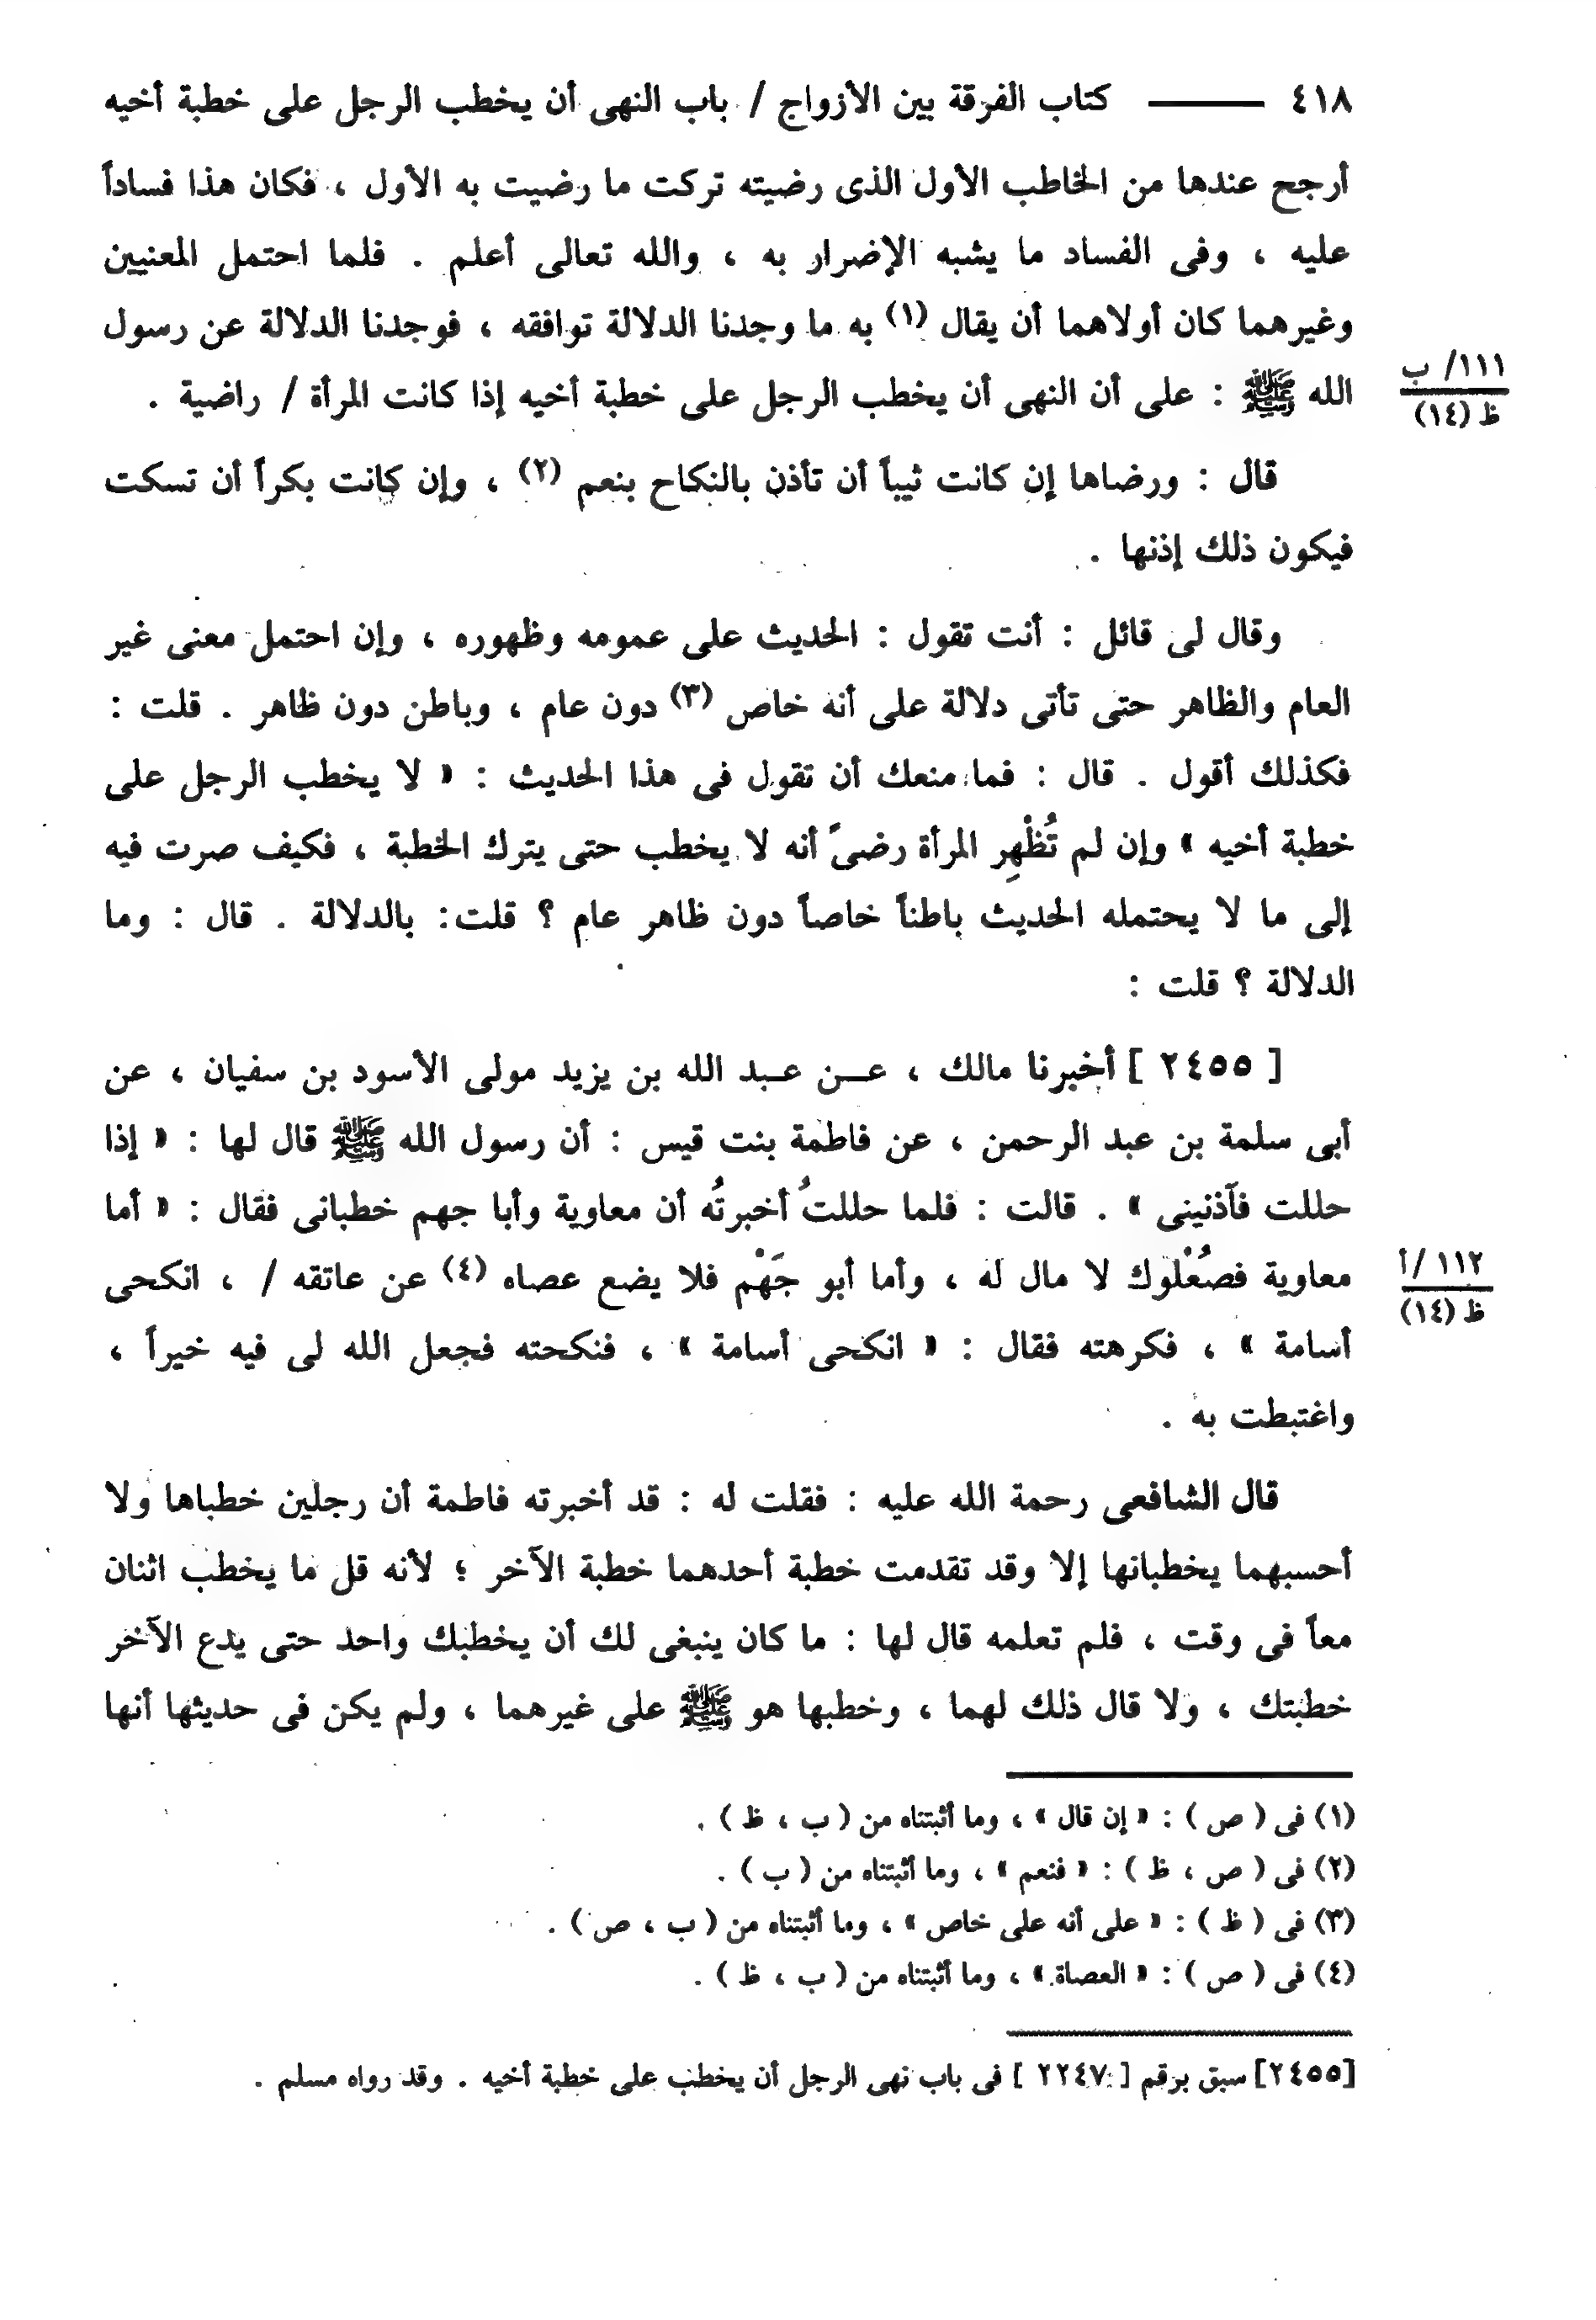 ٤١٨ ——— كتاب الفرقة بين الأزواج / باب النهى أن يخطب الرجل على خطبة أخيه
أرجح عندها من الخاطب الأول الذى رضيته تركت ما رضيت به الأول ، فكان هذا فساداً
عليه ، وفى الفساد ما يشبه الإضرار به ، والله تعالى أعلم . فلما احتمل المعنيين
وغيرهما كان أولاهما أن يقال (١) به ما وجدنا الدلالة توافقه ، فوجدنا الدلالة عن رسول
الله ﷺ : على أن النهى أن يخطب الرجل على خطبة أخيه إذا كانت المرأة / راضية .
١١١/ ب
ظ (١٤)
قال : ورضاها إن كانت ثيباً أن تأذن بالنكاح بنعم (٢) ، وإن كانت بكراً أن تسكت
فيكون ذلك إذنها .
وقال لى قائل : أنت تقول : الحديث على عمومه وظهوره ، وإن احتمل معنى غير
العام والظاهر حتى تأتى دلالة على أنه خاص (٣) دون عام ، وباطن دون ظاهر . قلت :
فكذلك أقول . قال : فما منعك أن تقول فى هذا الحديث : « لا يخطب الرجل على
خطبة أخيه » وإن لم تُظْهِر المرأة رضىً أنه لا يخطب حتى يترك الخطبة ، فكيف صرت فيه
إلى ما لا يحتمله الحديث باطناً خاصاً دون ظاهر عام ؟ قلت: بالدلالة . قال : وما
الدلالة ؟ قلت :
[ ٢٤٥٥ ] أخبرنا مالك ، عـــن عـبد الله بن يزيد مولى الأسود بن سفيان ، عن
أبى سلمة بن عبد الرحمن ، عن فاطمة بنت قيس : أن رسول الله ﷺ قال لها : « إذا
حللت فآذنينى » . قالت : فلما حللتُ أخبرتُه أن معاوية وأبا جهم خطبانى فقال : « أما
معاوية فصُعْلُوك لا مال له ، وأما أبو جَهْم فلا يضع عصاه (٤) عن عاتقه / ، انكحى
١١٢ /أ
ظ (١٤)
أسامة » ، فكرهته فقال : « انكحى أسامة » ، فنكحته فجعل الله لى فيه خيراً ،
واغتبطت به .
قال الشافعى رحمة الله عليه : فقلت له : قد أخبرته فاطمة أن رجلين خطباها ولا
أحسبهما يخطبانها إلا وقد تقدمت خطبة أحدهما خطبة الآخر ؛ لأنه قل ما يخطب اثنان
معاً فى وقت ، فلم تعلمه قال لها : ما كان ينبغى لك أن يخطبك واحد حتى يدع الآخر
خطبتك ، ولا قال ذلك لهما ، وخطبها هو ﷺ على غيرهما ، ولم يكن فى حديثها أنها
(١) فى ( ص ) : « إن قال » ، وما أثبتناه من ( ب ، ظ ) .
(٢) فى ( ص ، ظ ) : « فنعم » ، وما أثبتناه من ( ب ) .
(٣) فى ( ظ ) : « على أنه على خاص » ، وما أثبتناه من ( ب ، ص ) .
(٤) فى ( ص ) : « العصاة » ، وما أثبتناه من ( ب ، ظ ) .
[٢٤٥٥] سبق برقم [ ٢٢٤٧ ] فى باب نهى الرجل أن يخطب على خطبة أخيه . وقد رواه مسلم .